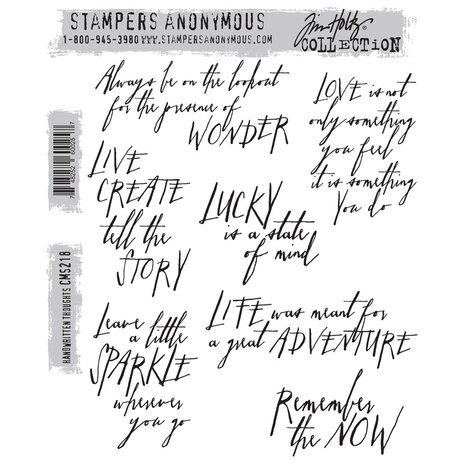 STAMPERS ANONYMOUS
1-800-945-3980 www.STAMPERSANONYMOUS.COM
Tim Holtz
COLLECTiON
Always be on the lookout
for the presence of
WONDER
LOVE is not
only something
you feel
it is something
you do
LIVE
CREATE
tell the
STORY
LUCKY
is a state
of mind
HANDWRITTEN THOUGHTS CMS218
LIFE was meant for
a great ADVENTURE
Leave a little
SPARKLE
wherever
you go
Remember
the NOW